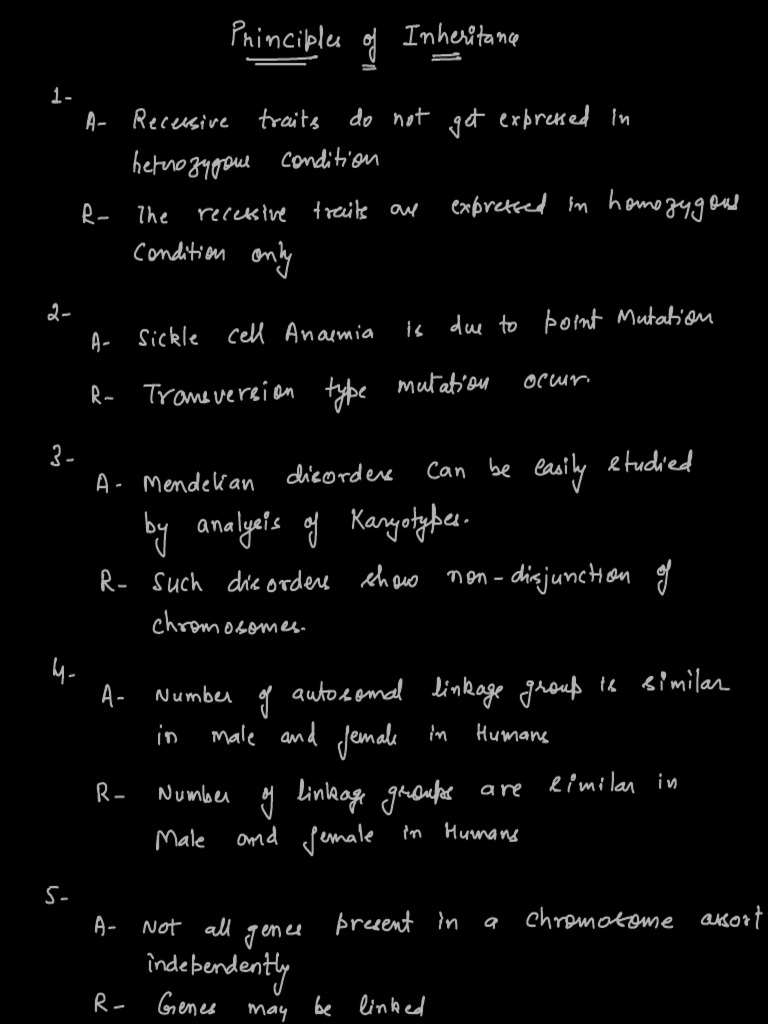 Principles of Inheritance
1-
A- Recessive traits do not get expressed in
hetrozygous condition
R- The recessive traits are expressed in homozygous
Condition only
2-
A- Sickle cell Anaemia is due to point Mutation
R- Transversion type mutation occur.
3-
A- Mendelian disorders can be easily studied
by analysis of Karyotypes.
R- Such disorders show non-disjunction of
chromosomes.
4-
A- Number of autosomal linkage group is similar
in male and female in Humans
R- Number of linkage groups are similar in
Male and female in Humans
5-
A- Not all genes present in a chromosome assort
independently
R- Genes may be linked